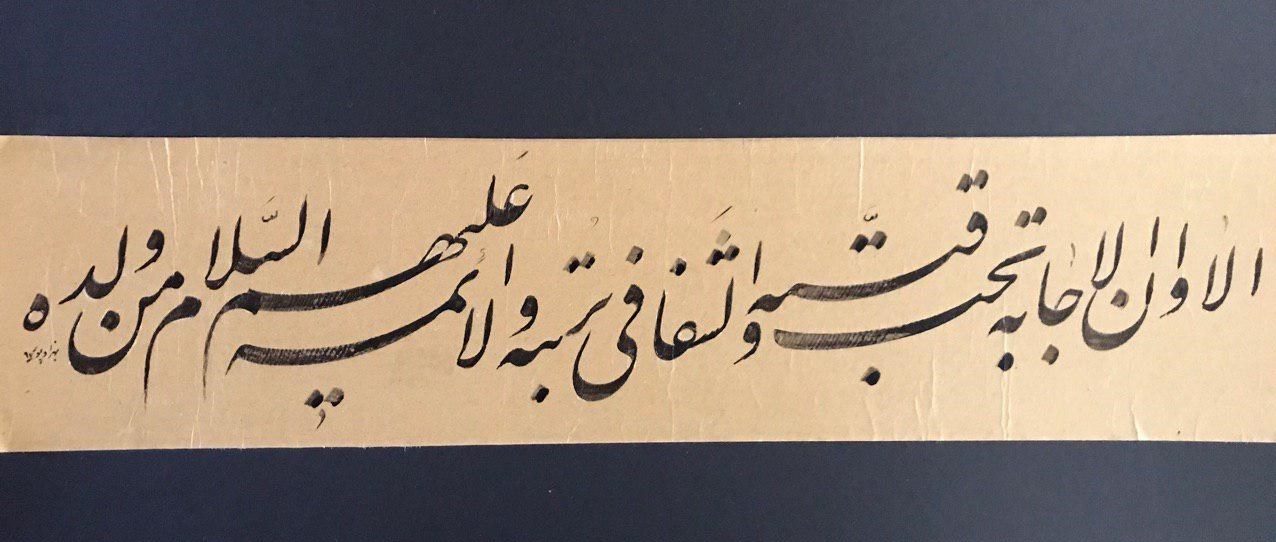 الا وان الاجابة تحت قبته والشفا فی تربته والائمة علیهم السلام من ولده